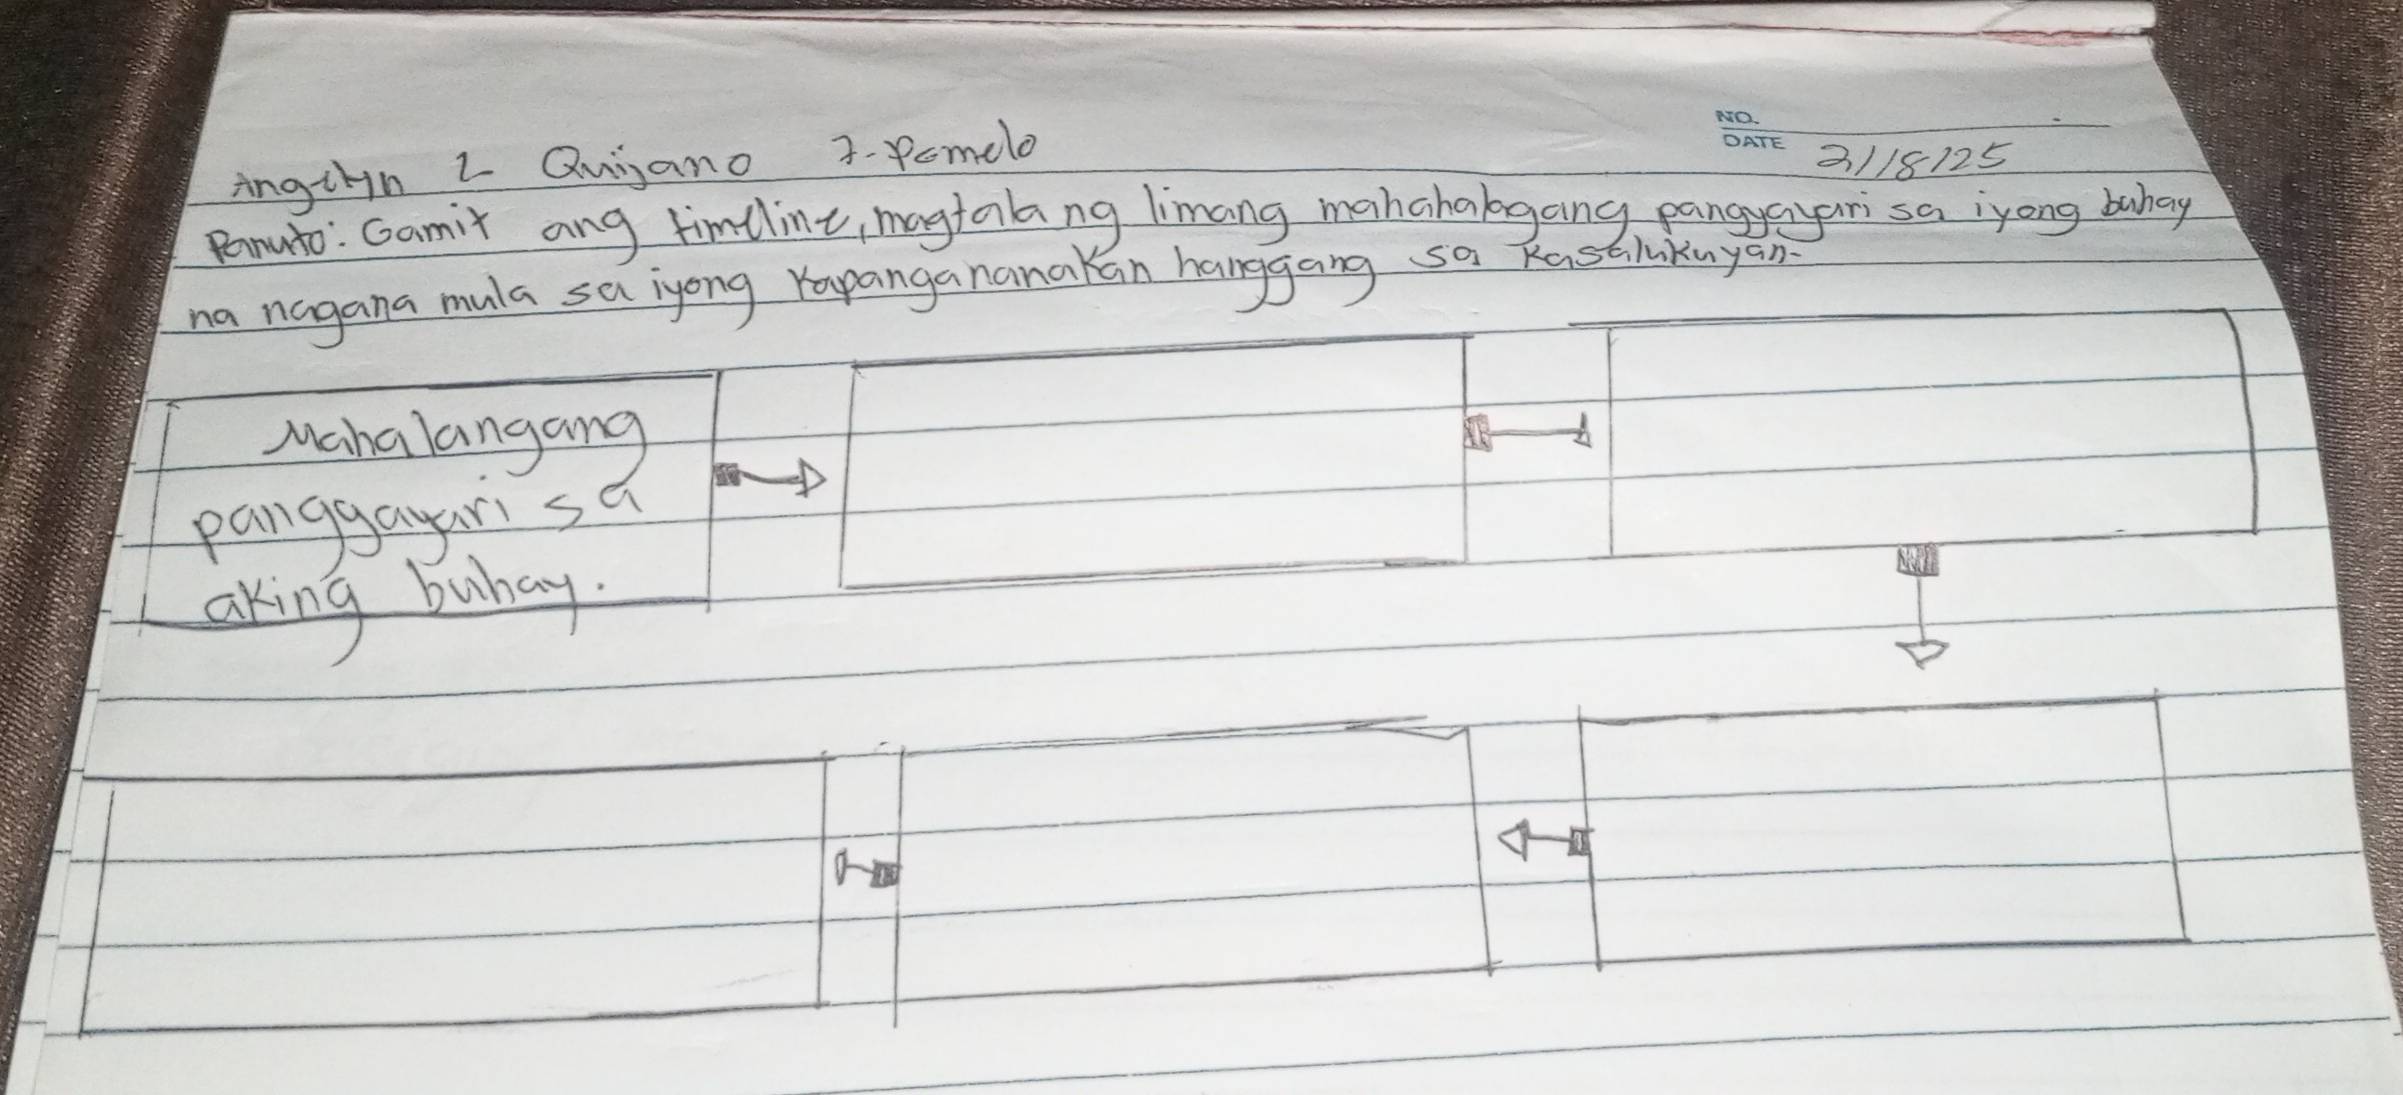 Angelyn L Quijano 7-Pomelo
NO.
DATE 2/18/25
Panuto: Gamit ang timeline, magtala ng limang mahahalagang pangyayari sa iyong buhay
na nagana mula sa iyong kapangananakan hanggang sa kasalukuyan.
Mahalangang
panggayari sa
aking buhay.